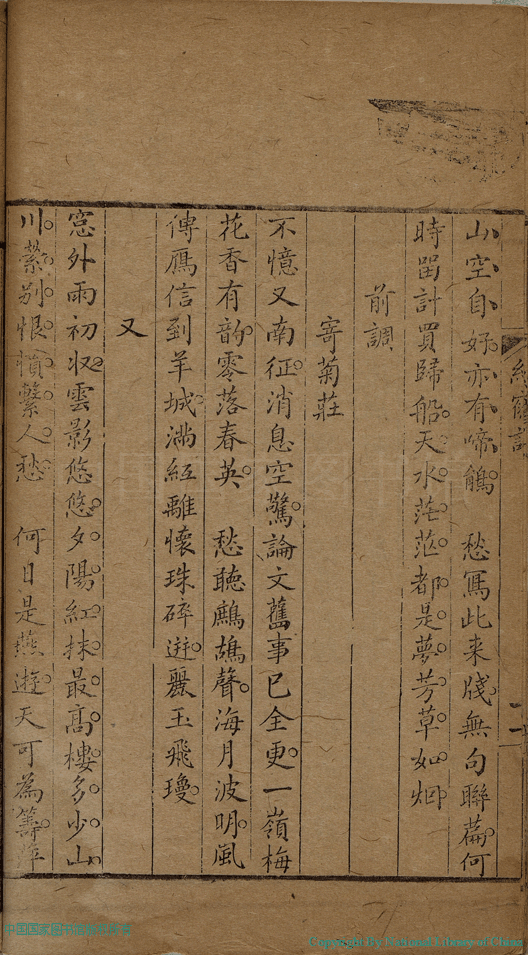 山空自好亦有啼鵑　愁寫此来牋無句聯篇何
時畱計買歸船天水茫茫都是夢芳草如烟
前調
寄菊莊
不憶又南征消息空驚論文舊事已全更一嶺梅
花香有韵零落春英　愁聽鷓鴣聲海月波明風
傳鴈信到羊城滿紙離懷珠碎迸麗玉飛瓊
又
窓外雨初收雲影悠悠夕陽紅抹最高樓多少山
川縈别恨慣繫人愁　何日是燕遊天可為籌
中国国家图书馆
Copyright by National Library of China